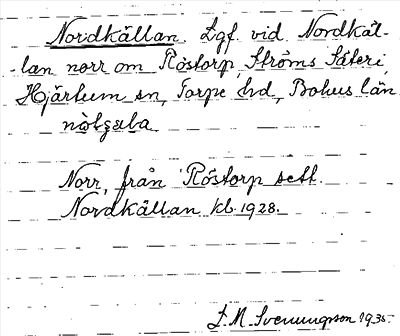 Nordkällan. Lgf vid Nordkäl-
-lan norr om Röstorp Ströms Säteri
Hjärtum sn, Torpe hd, Bohus län

Norr, från Röstorp sett.
Nordkällan kb. 1928.
L.M. Svenungson 1935-